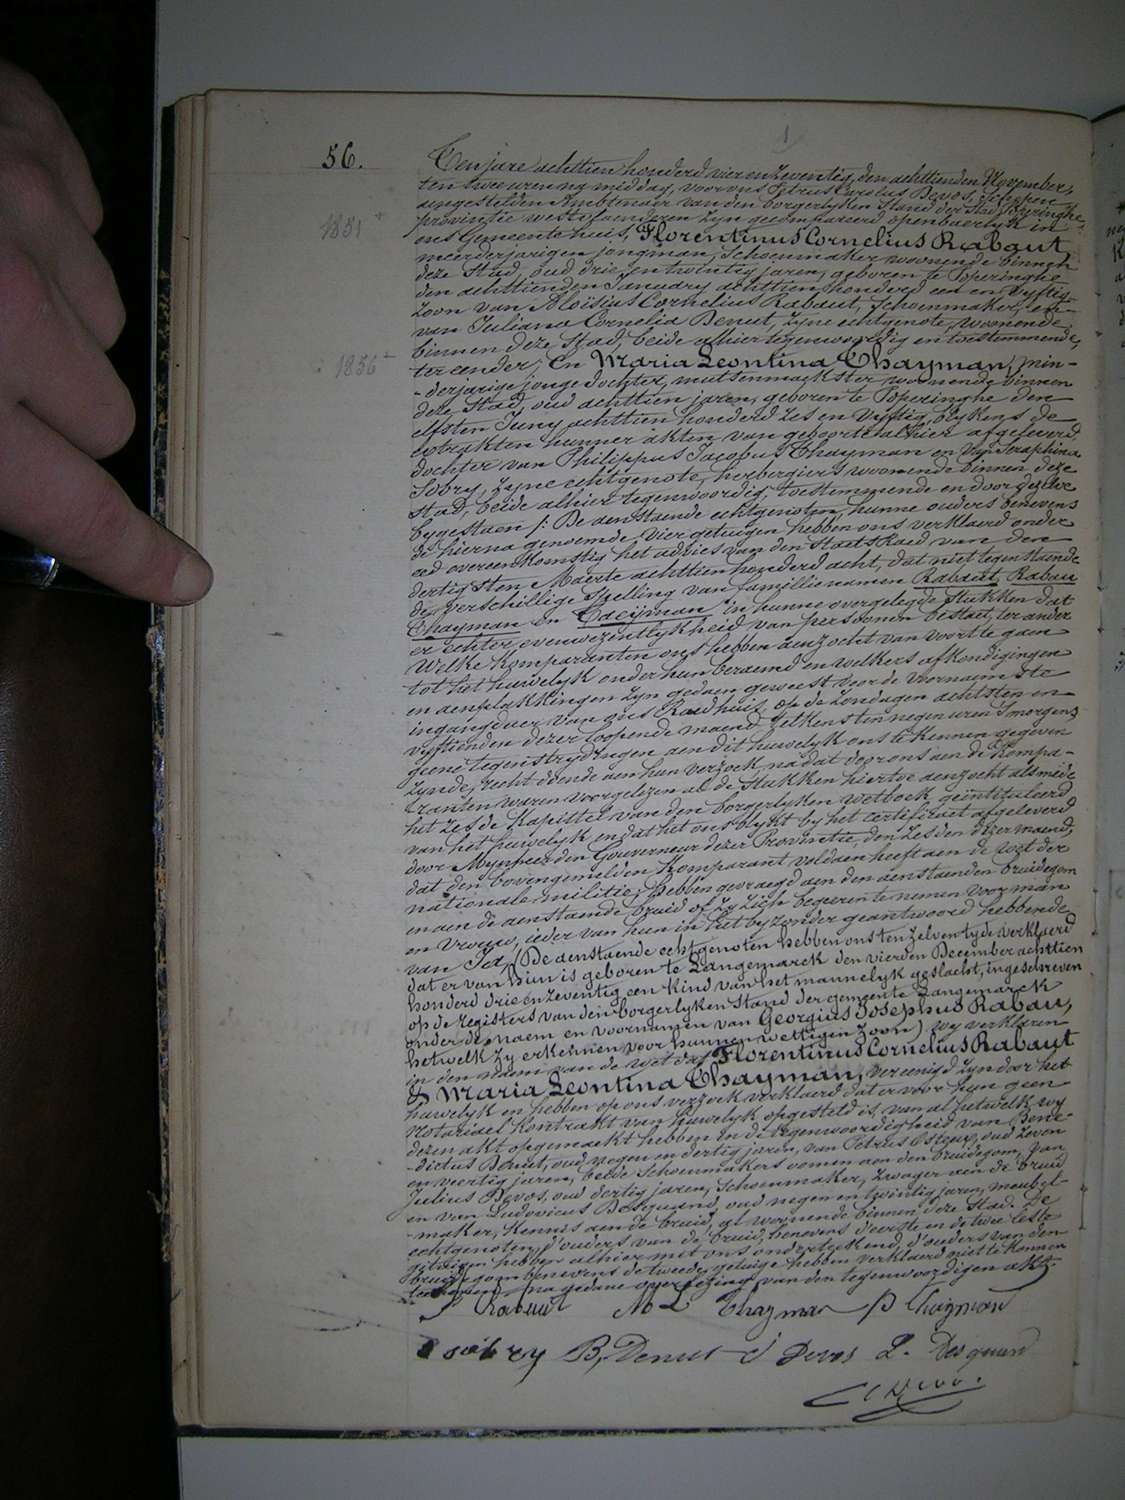 1
56.
Ten jare achttien honderd vier en zeventig, den achttienden November,
ten twee uren na middag, voor ons Petrus Carolus Devos, Schepen
aengestelden Ambtenaar van den borgerlyken Stand der Stad Poperinghe,
provintie westvlaenderen zyn gecompareerd openbaerlyk in
1851
ons Gemeentehuis, Florentinus Cornelius Rabaut
meerderjarigen jongman, Schoenmaker woonende binnen
deze Stad, oud drie en twintig jaren, geboren te Poperinghe
den achttienden January achttien honderd een en vyftig
zoon van Aloisius Cornelius Rabaut, Schoenmaker, en
van Juliana Cornelia Denut, zyne echtgenote, woonende
binnen deze stad, beide alhier tegenwoordig en toestemmende,
1856
ter eender, En Maria Leontina Thayman, min-
-derjarige jonge dochter, mutsenmaekster woonende binnen
deze Stad, oud achttien jaren, geboren te Poperinghe den
elfsten Juny achttien honderd zes en vyftig, blykens de
extrakten hunner akten van geboorte alhier afgeleverd,
dochter van Philippus Jacobus Thayman en van Seraphina
Sobry, zyne echtgenote, herbergiers woonende binnen deze
stad, beide alhier tegenwoordig, toestemmende en door dezelve
bygestaen /: De aenstaende echtgenoten, hunne ouders benevens
de hierna genoemde vier getuigen hebben ons verklaerd onder
eed overeenkomstig het advies van den Staets Raed van den
dertigsten Maerte achttien honderd acht, dat niet tegenstaende
de verschillige spelling van famillienamen Rabaut, Rabau
Thayman en Taeijman in hunne overgelegde stukken dat
er echter evenwezentlykheid van persoonen bestaet, ter ander
Welke komparanten ons hebben aenzocht van voort te gaen
tot het huwelyk onder hun beraemd en welkers afkondigingen
en aenplakkingen zyn gedaen geweest voor de voornaemste
ingangdeur van ons Raedhuis, op de zondagen achtsten en
vyftienden dezer loopende maend telkens ten negen uren s'morgens
geene tegenstrydingen aen dit huwelyk ons te kennen gegeven
zynde, recht doende aen hun verzoek, na dat door ons aen de kompa-
ranten waren voorgelezen al de stukken hiertoe aenzocht alsmede
het zesde Kapittel van den borgerlyken Wetboek geintituleerd
van het huwelyk, en dat het ons blykt by het certificaet afgeleverd
door Mynheer den Gouverneur dezer Provintie, den zesden dezer maend,
dat den bovengemelden komparant voldaen heeft aen de wet der
nationale militie, hebben gevraegd aen den aenstaenden bruidegom
en aen de aenstaende bruid of zy zich begeeren te nemen voor man
en vrouw, ieder van hun in het byzonder geantwoord hebbende
van Ja, (De aenstaende echtgenoten hebben ons ten zelven tyde verklaerd
dat er van hun is geboren te Langemarck den vierden December achttien
honderd drie en zeventig een kind van het mannelyk geslacht, ingeschreven
op de registers van den borgerlyken Stand der gemeente Langemarck
onder de naem en voornamen van Georgius Josephus Rabau,
hetwelk zy erkennen voor hunnen wettigen zoon) wy verklaren
in den naem van de wet dat Florentinus Cornelius Rabaut
& Maria Leontina Thayman, vereenigd zyn door het
huwelyk en hebben op ons verzoek verklaerd dat er voor hun geen
Notariael kontrakt van huwelyk opgesteld is, van al hetwelk wy
dezen akt opgemaekt hebben in de tegenwoordigheid van Bene-
-dictus Denut, oud negen en dertig jaren, van Petrus oud zeven
en veertig jaren, beide Schoenmakers oomen aen den bruidegom, van
Julius Devos, oud dertig jaren, Schoenmaker, Zwager aen de bruid
en van Ludovicus Desquand, oud negen en twintig jaren, meubel-
-maker, kennis aen de bruid, al woonende binnen deze Stad. De
echtgenoten, d'ouders van de bruid, benevens d'eerste en de twee leste
getuigen hebben alhier met ons onderteekend, d'ouders van den
bruidegom benevens de tweede getuige hebben verklaerd niet te konnen
na gedane overlezing van den tegenwoordigen akt.
Rabaut M L Thayman P Thayman
Sobry B, Denut J Devos L. Desquand
C Devos.